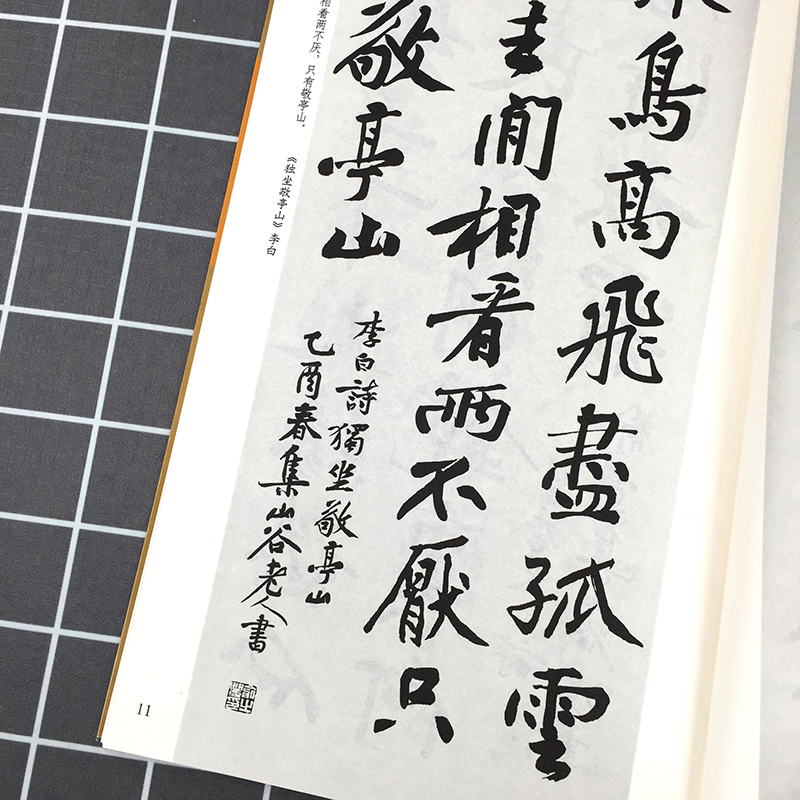 鳥高飛盡孤雲
去閒相看兩不厭只
敬亭山
李白詩獨坐敬亭山
乙酉春集山谷老人書
相看两不厌，只有敬亭山。
《独坐敬亭山》李白
11